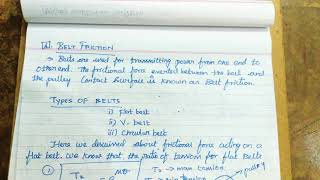 BELT FRICTION
→ Belts are used for transmitting power from one end to
other end. The frictional force exerted between the belt and
the pulley Contact Surface is known as Belt friction.
TYPES OF BELTS
i) Flat belt
ii) V- belt
iii) Circular belt
Here we discussed about frictional force acting on a
flat belt. we know that the ratio of tension for flat belts
① T₂ T₂ → max tension